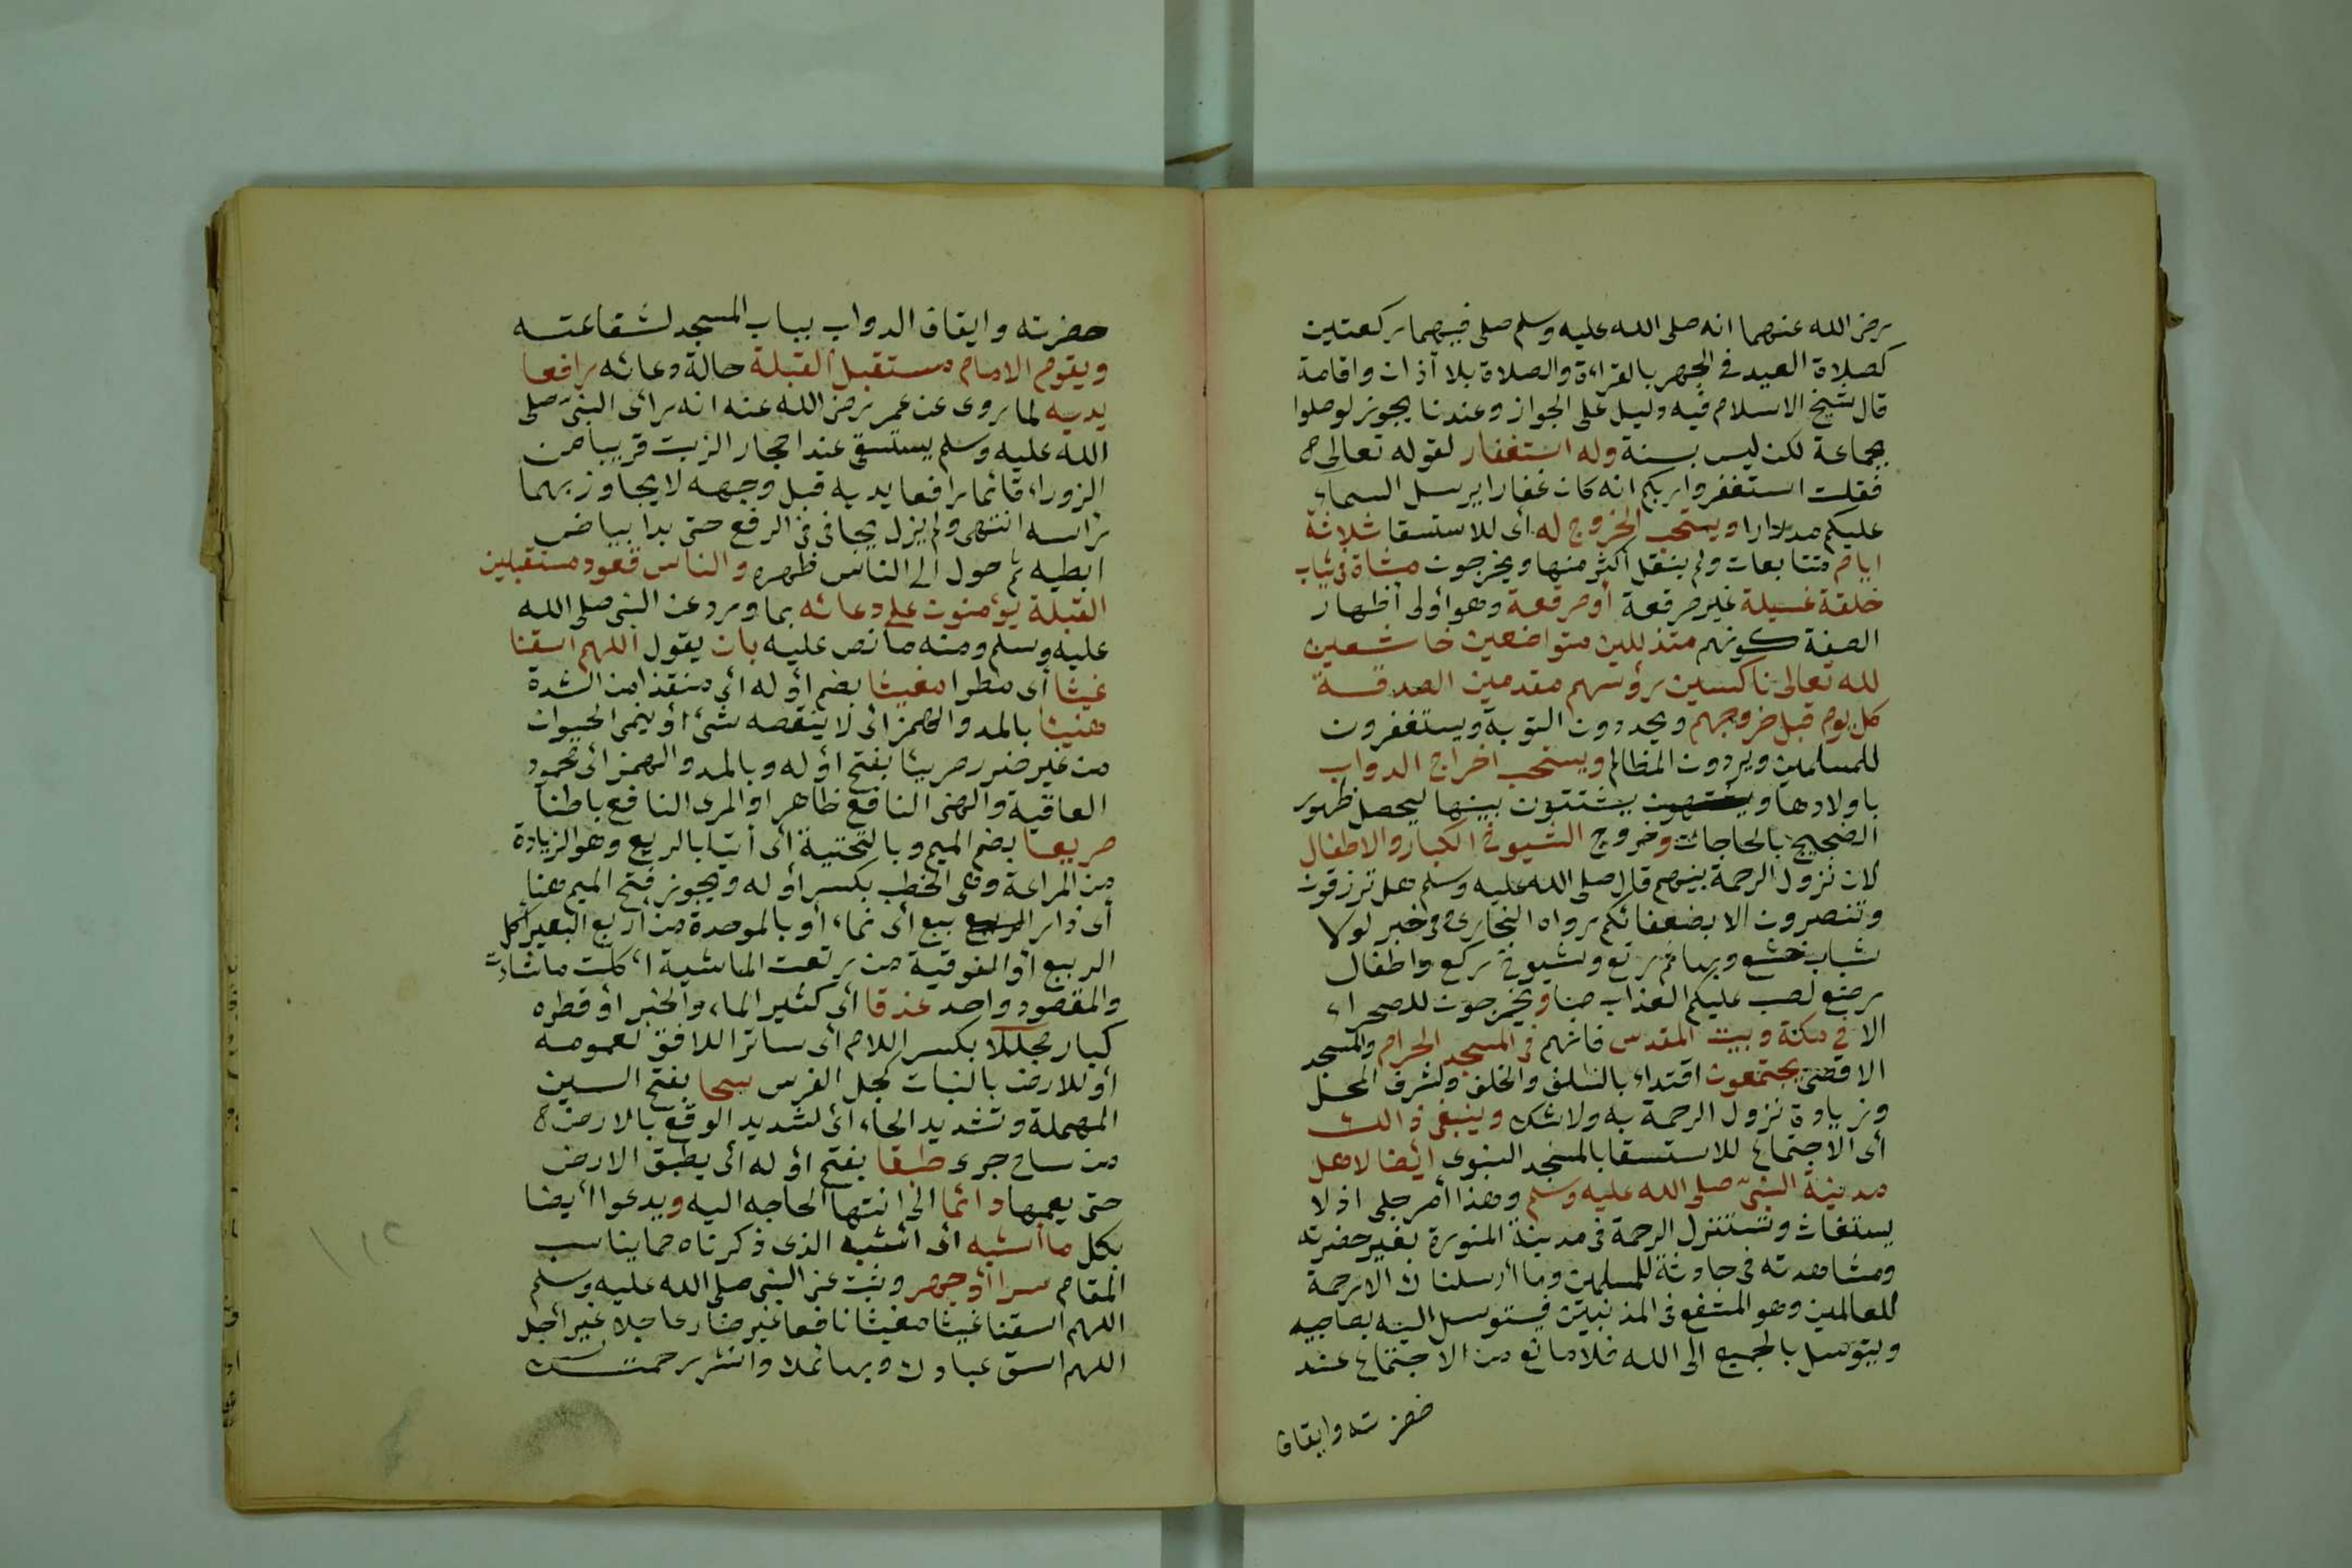 رضى الله عنهما انه صلى الله عليه وسلم صلى فيهما ركعتين
كصلاة العيد فى الجهر بالقراءة والصلاة بلا آذان واقامة
قال شيخ الاسلام فيه دليل على الجواز وعندنا يجوز لو صلوا
بجماعة لكن ليس بسنة وله استغفار لقوله تعالى
فقلت استغفروا ربكم انه كان غفارا يرسل السماء
عليكم مدرارا ويستحب الخروج له أى للاستسقا ثلاثة
ايام متتابعات ولم ينقل أكثر منها ويخرجون مشاة فى ثياب
خلقة غسيلة غير مرقعة أو مرقعة وهو أولى أظهارا
لصفة كونهم متذللين متواضعين خاشعين
لله تعالى ناكسين رؤسهم مقدمين الصدقة
كل يوم قبل خروجهم ويجددون التوبة ويستغفرون
للمسلمين ويردون المظالم ويستحب اخراج الدواب
باولادها ويشتتون بينها ليحصل ظهور
الضجيج بالحاجات وخروج الشيوخ الكبار والاطفال
لان نزول الرحمة بينهم قال صلى الله عليه وسلم هل ترزقون
وتنصرون الا بضعفائكم رواه البخارى وفى خبر لولا
شباب خشع وبهائم رتع وشيوخ ركع واطفال
رضع لصب عليكم العذاب صبا ويخرجون للصحراء
الا فى مكة وبيت المقدس فانهم فى المسجد الحرام والمسجد
الاقصى يجتمعون اقتداء بالسلف والخلف ولشرف المحل
وزيادة نزول الرحمة به ولاشك وينبغى ذالك
أى الاجتماع للاستسقا بالمسجد النبوى ايضا لاهل
مدينة النبى صلى الله عليه وسلم وهذا أمر جلى اذ لا
يستغاث وتستنزل الرحمة فى مدينة المنورة بغير حضرته
ومشاهدته فى حادثة للمسلمين وما أرسلناك الا رحمة
للعالمين وهو المشفع فى المذنبين فيتوسل اليه بصاحبيه
ويتوسل بالجميع الى الله فلا مانع من الاجتماع عند
حضرته وايقاف
حضرته وايقاف الدواب بباب المسجد لشفاعته
ويقوم الامام مستقبل القبلة حالة دعائه رافعا
يديه لما روى عن عمر رضى الله عنه انه رأى النبى صلى
الله عليه وسلم يستسقى عند احجار الزيت قريبا من
الزوراء قائما رافعا يديه قبل وجهه لا يجاوز بهما
رأسه انتهى ولم يزل يجافى فى الرفع حتى بدا بياض
ابطيه ثم حول الى الناس ظهره والناس قعود مستقبلين
القبلة يؤمنون على دعائه بما ورد عن النبى صلى الله
عليه وسلم ومنه ما نص عليه بان يقول اللهم اسقنا
غيثا أى مطرا مغيثا بضم أوله أى منقذا من الشدة
هنيئا بالمد والهمز أى لا ينقصه شئ أو ينمى الحيوان
من غير ضرر مريئا بفتح أوله وبالمد والهمز أى محمود
العاقبة والهنى النافع ظاهرا والمرى النافع باطنا
مريعا بضم الميم وبالتحتية أى أتيا بالريع وهو الزيادة
من المراعة وهى الخصب بكسر أوله ويجوز فتح الميم هنا
أى ذا ريع أى نماء أو بالموحدة من أربع البعير أكل
الربيع أو الفوقية من رتعت الماشية أكلت ما شاءت
والمقصود واحد غدقا أى كثير الماء والخير أو قطره
كبار مجللا بكسر اللام أى ساترا للافق لعمومه
أو للارض بالنبات كجل الفرس سحا بفتح السين
المهملة وتشديد الحاء أى لشديد الوقع بالارض
من ساح جرى طبقا بفتح أوله أى يطبق الارض
حتى يعمها دائما الى انتها الحاجه اليه ويدعوا أيضا
بكل ما أشبه أى أشبه الذى ذكرناه مما يناسب
المقام سرا أو جهر وثبت عن النبى صلى الله عليه وسلم
اللهم اسقنا غيثا مغيثا نافعا غير ضار عاجلا غير آجل
اللهم اسق عبادك وبهائمك وانشر رحمتك